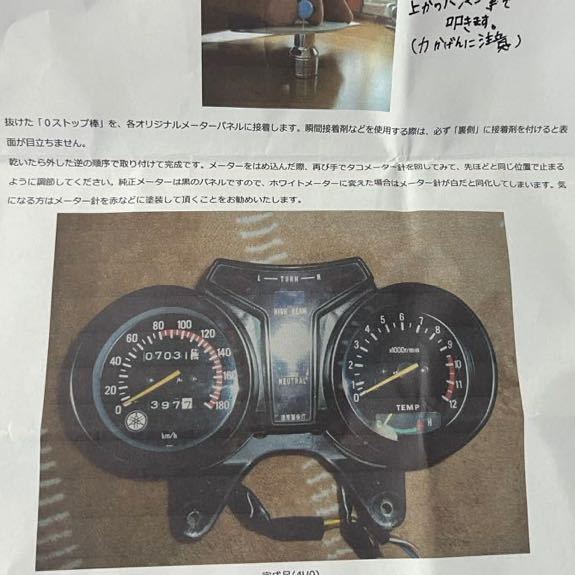 上からハンマー等で
叩きます。
(力かげんに注意)
抜けた「0ストップ棒」を、各オリジナルメーターパネルに接着します。瞬間接着剤などを使用する際は、必ず「裏側」に接着剤を付けると表
面が目立ちません。
乾いたら外した逆の順序で取り付けて完成です。メーターをはめ込んだ際、再び手でタコメーター針を回してみて、先ほどと同じ位置で止まる
ように調節してください。純正メーターは黒のパネルですので、ホワイトメーターに変えた場合はメーター針が白だと同化してしまいます。気
になる方はメーター針を赤などに塗装して頂くことをお勧めいたします。
L TURN R
HIGH BEAM
NEUTRAL
速度警告灯
0 20 40 60 80 100 120 140 160 180
07031
397 7
km/h
0 1 2 3 4 5 6 7 8 9 10 11 12
x1000r/min
TEMP
C H
完成品(4U0)